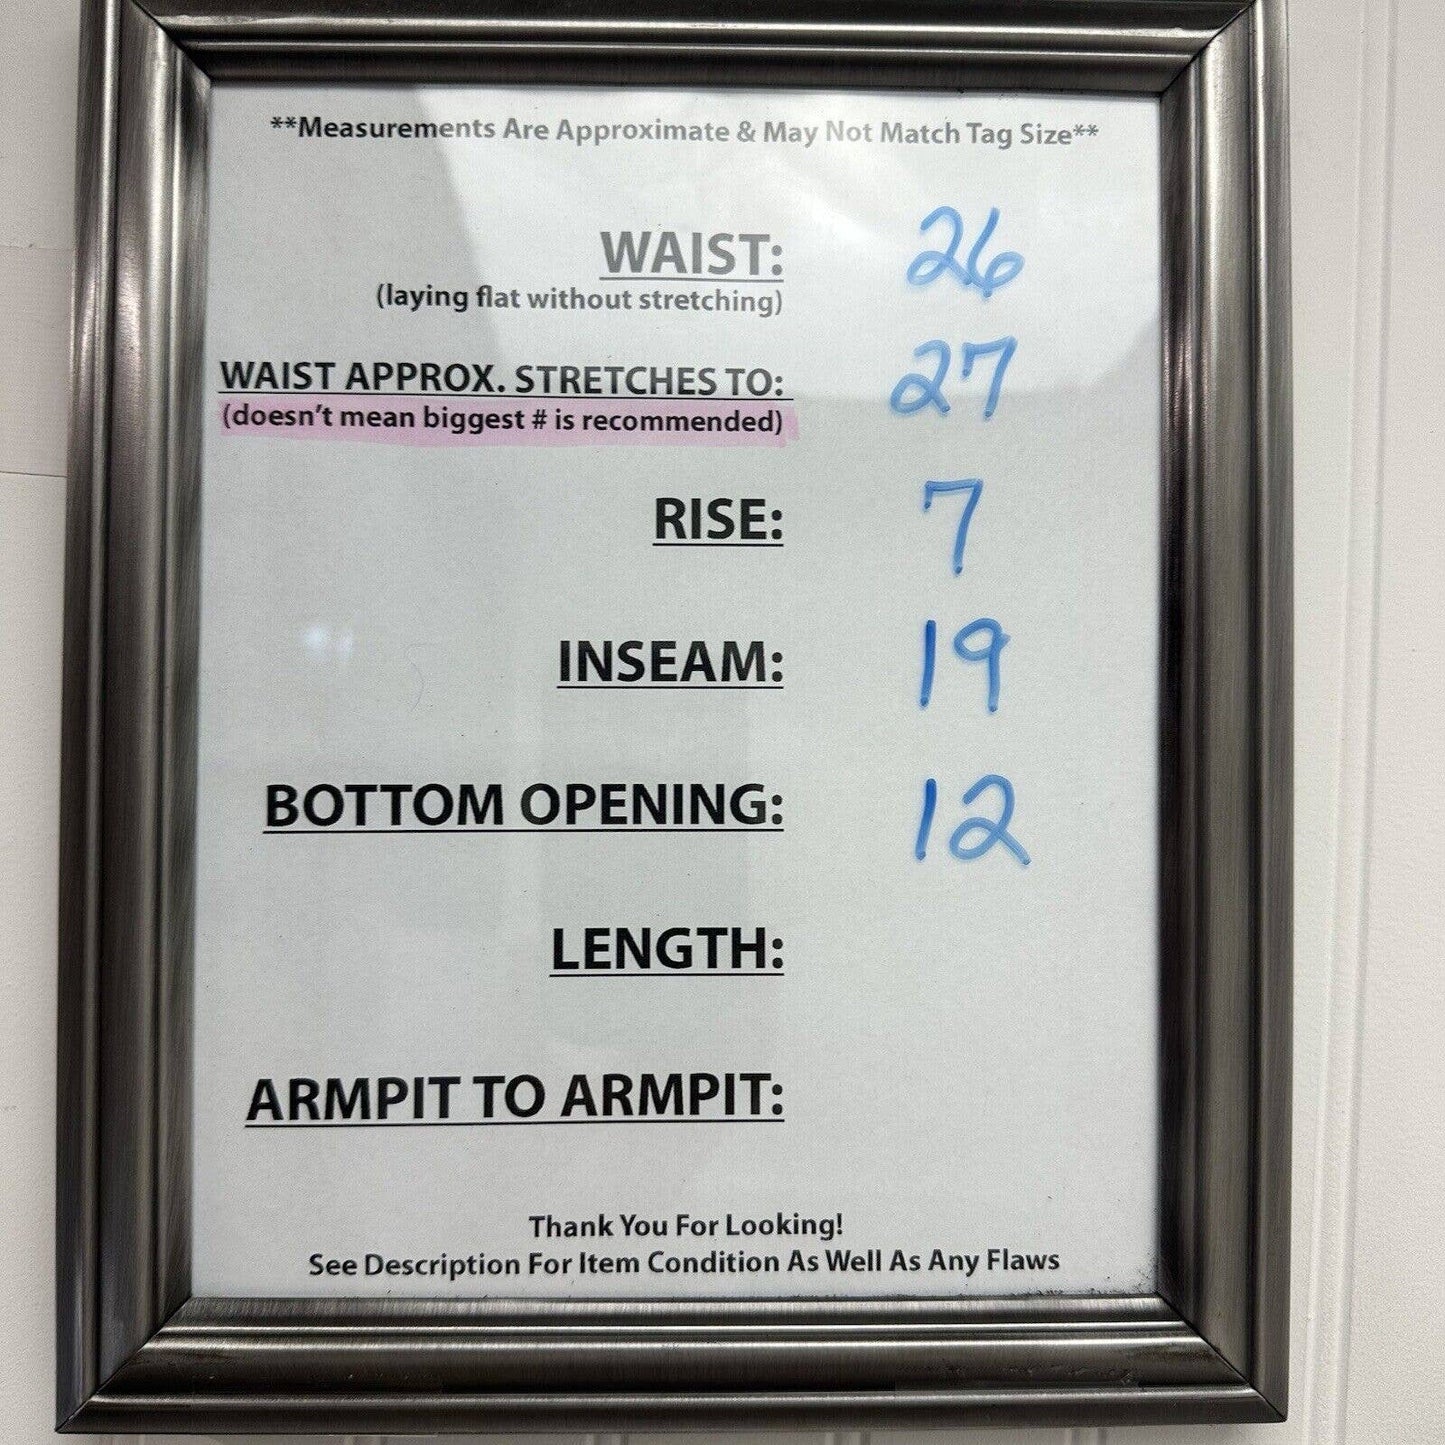 **Measurements Are Approximate & May Not Match Tag Size**
WAIST: 26
(laying flat without stretching)
WAIST APPROX. STRETCHES TO: 27
(doesn't mean biggest # is recommended)
RISE: 7
INSEAM: 19
BOTTOM OPENING: 12
LENGTH:
ARMPIT TO ARMPIT:
Thank You For Looking!
See Description For Item Condition As Well As Any Flaws